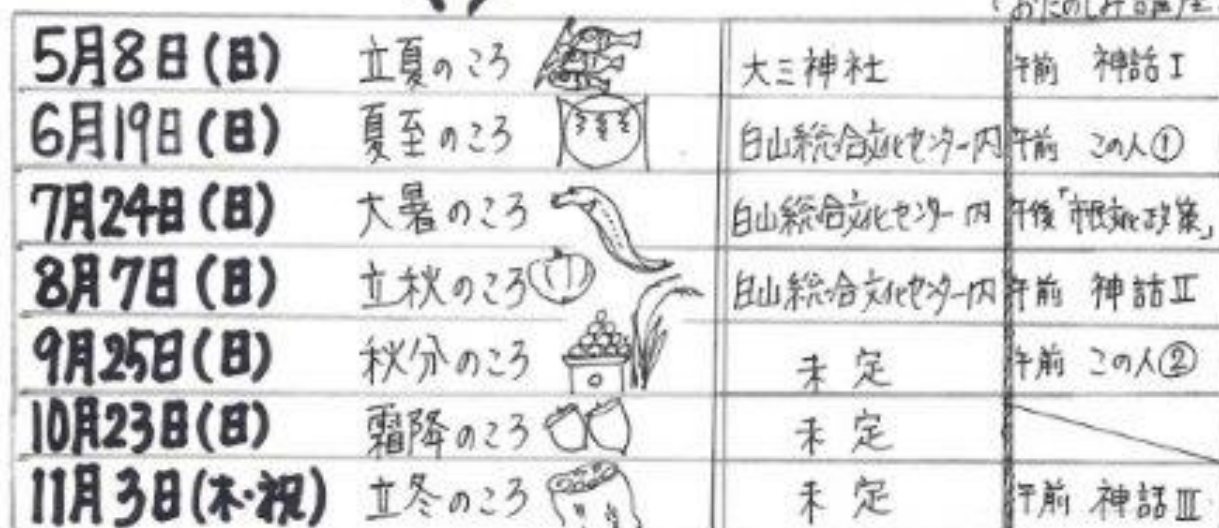 おたのしみ講座
5月8日(日) 立夏のころ 大三神社 午前 神話Ⅰ
6月19日(日) 夏至のころ 白山総合文化センター内 午前 この人①
7月24日(日) 大暑のころ 白山総合文化センター内 午後「市民文化政策」
8月7日(日) 立秋のころ 白山総合文化センター内 午前 神話Ⅱ
9月25日(日) 秋分のころ 未定 午前 この人②
10月23日(日) 霜降のころ 未定
11月3日(木・祝) 立冬のころ 未定 午前 神話Ⅲ